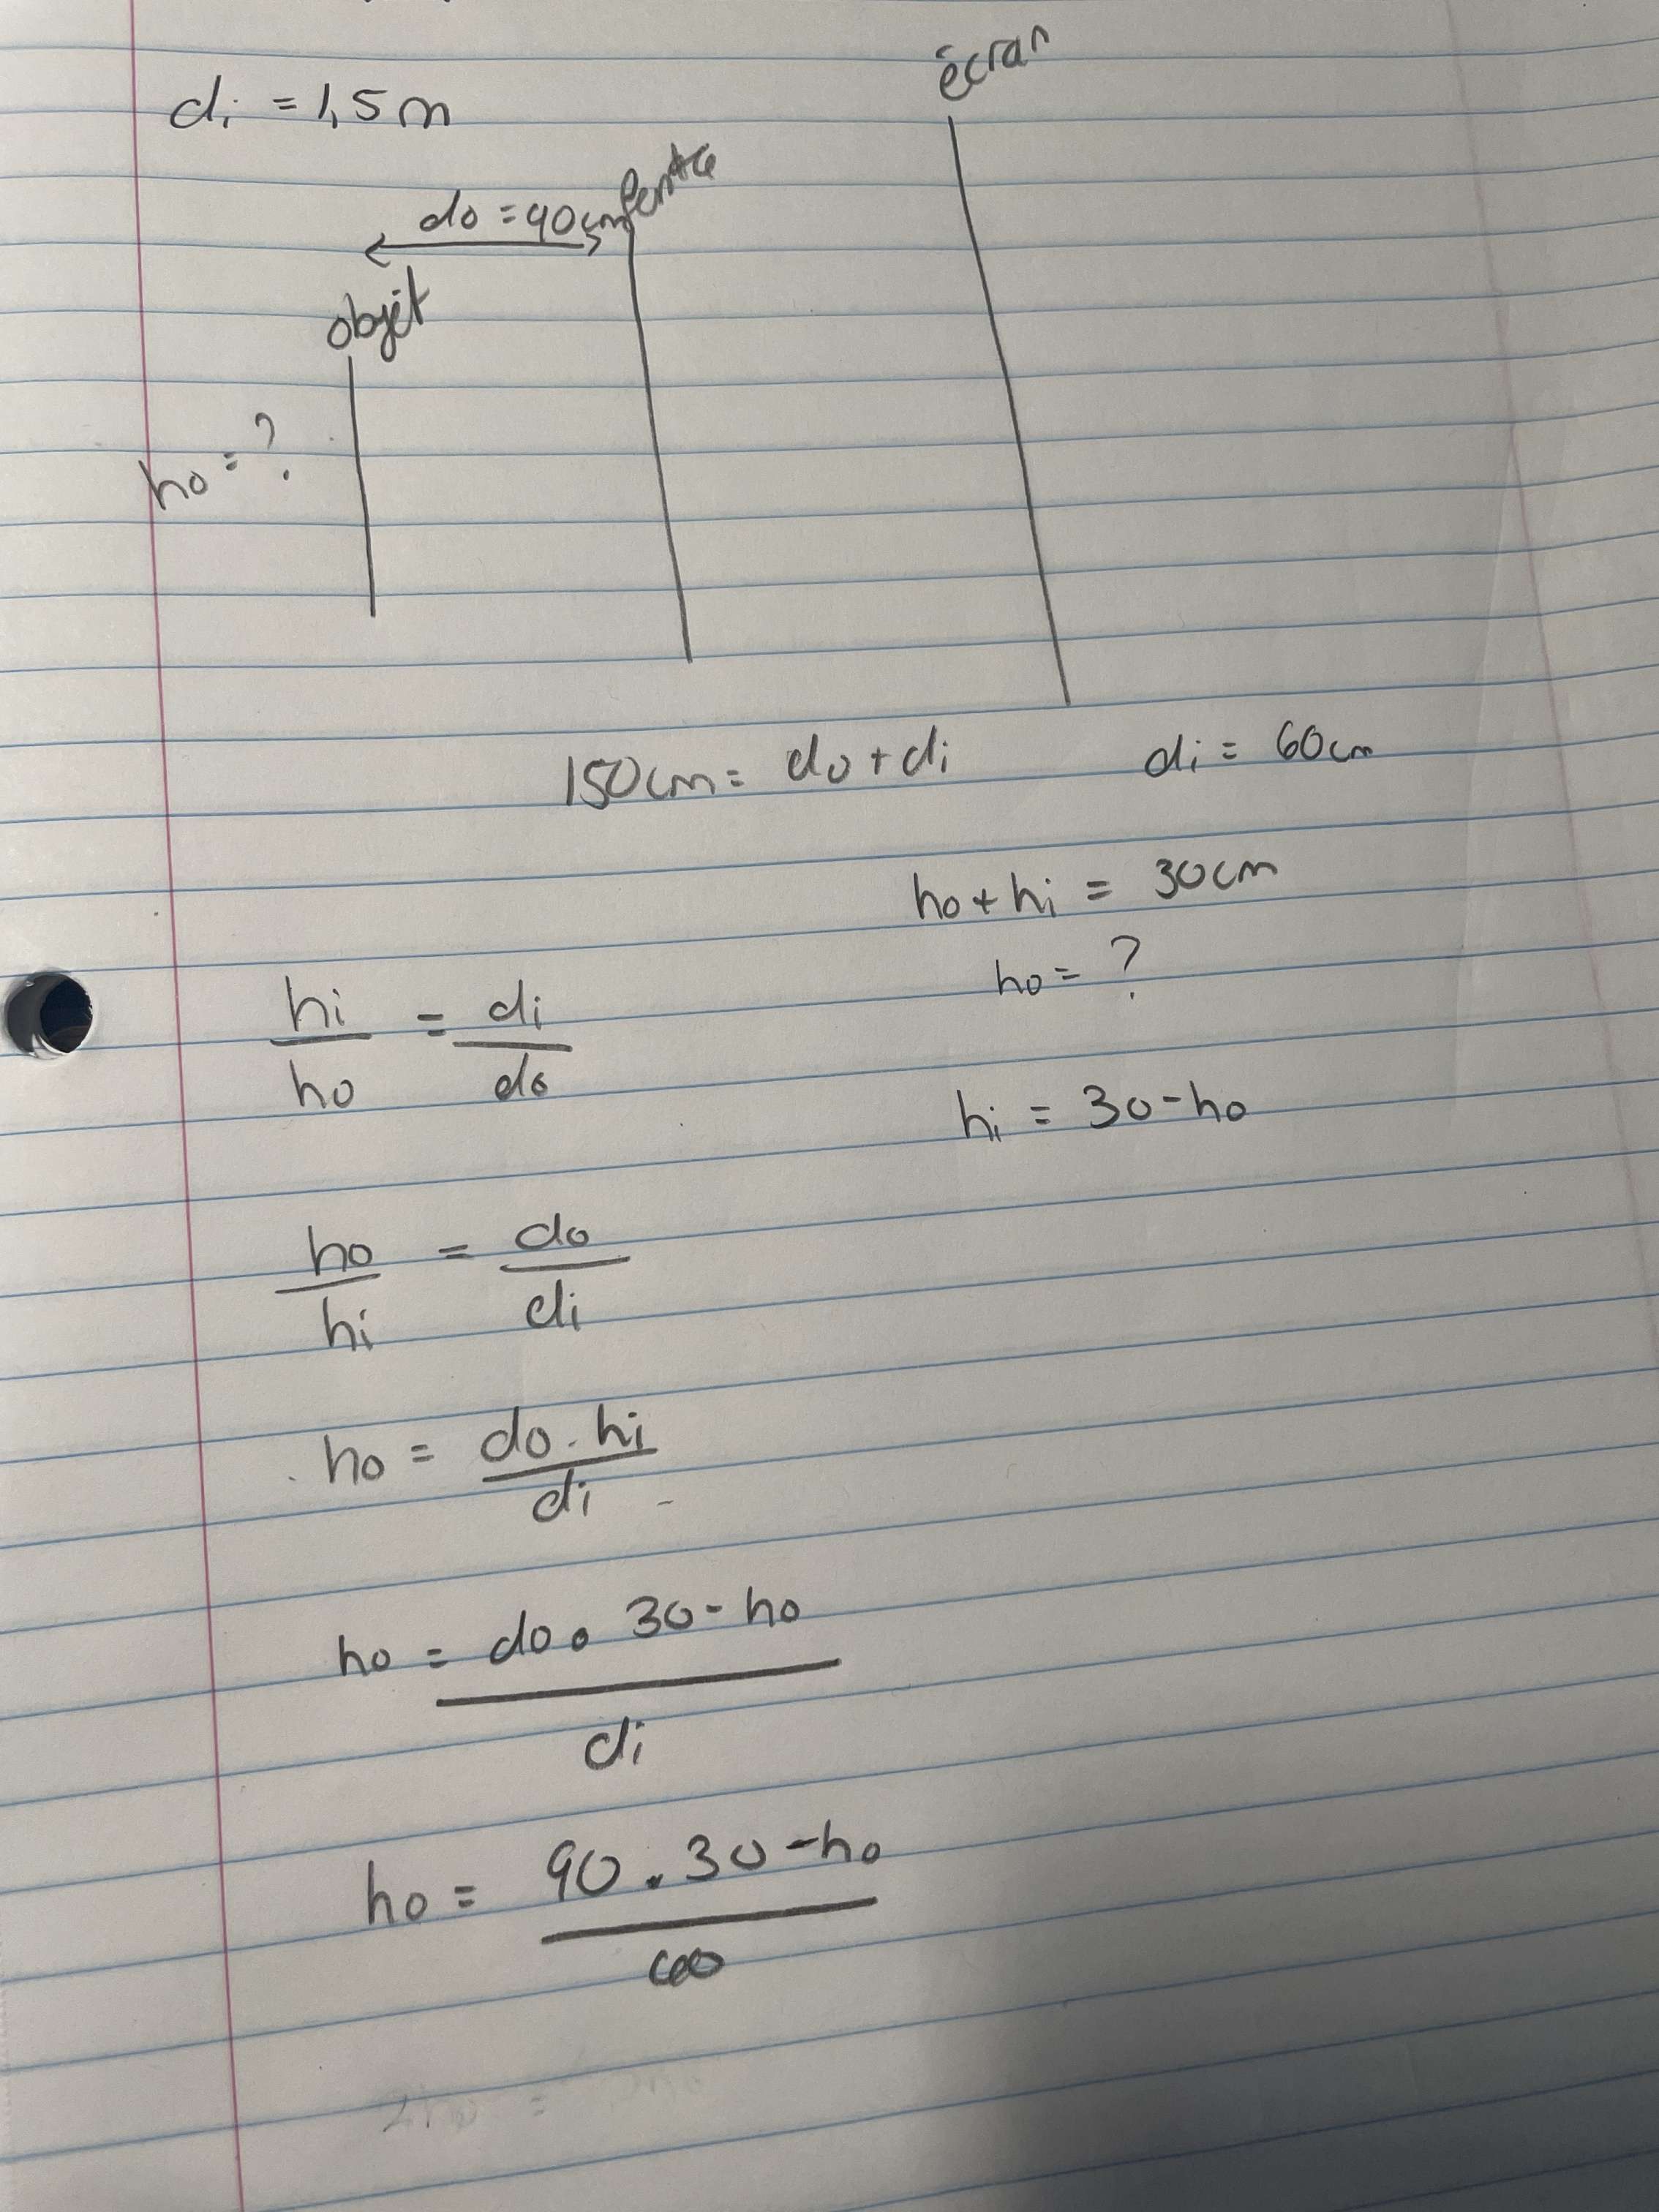 écran
di = 1,5 m
fente
do = 90cm
objet
ho = ?
150cm = do + di
di = 60cm
ho + hi = 30cm
ho = ?
hi/ho = di/do
hi = 30 - ho
ho/hi = do/di
ho = do . hi / di
ho = do • 30 - ho / di
ho = 90 . 30 - ho / 60